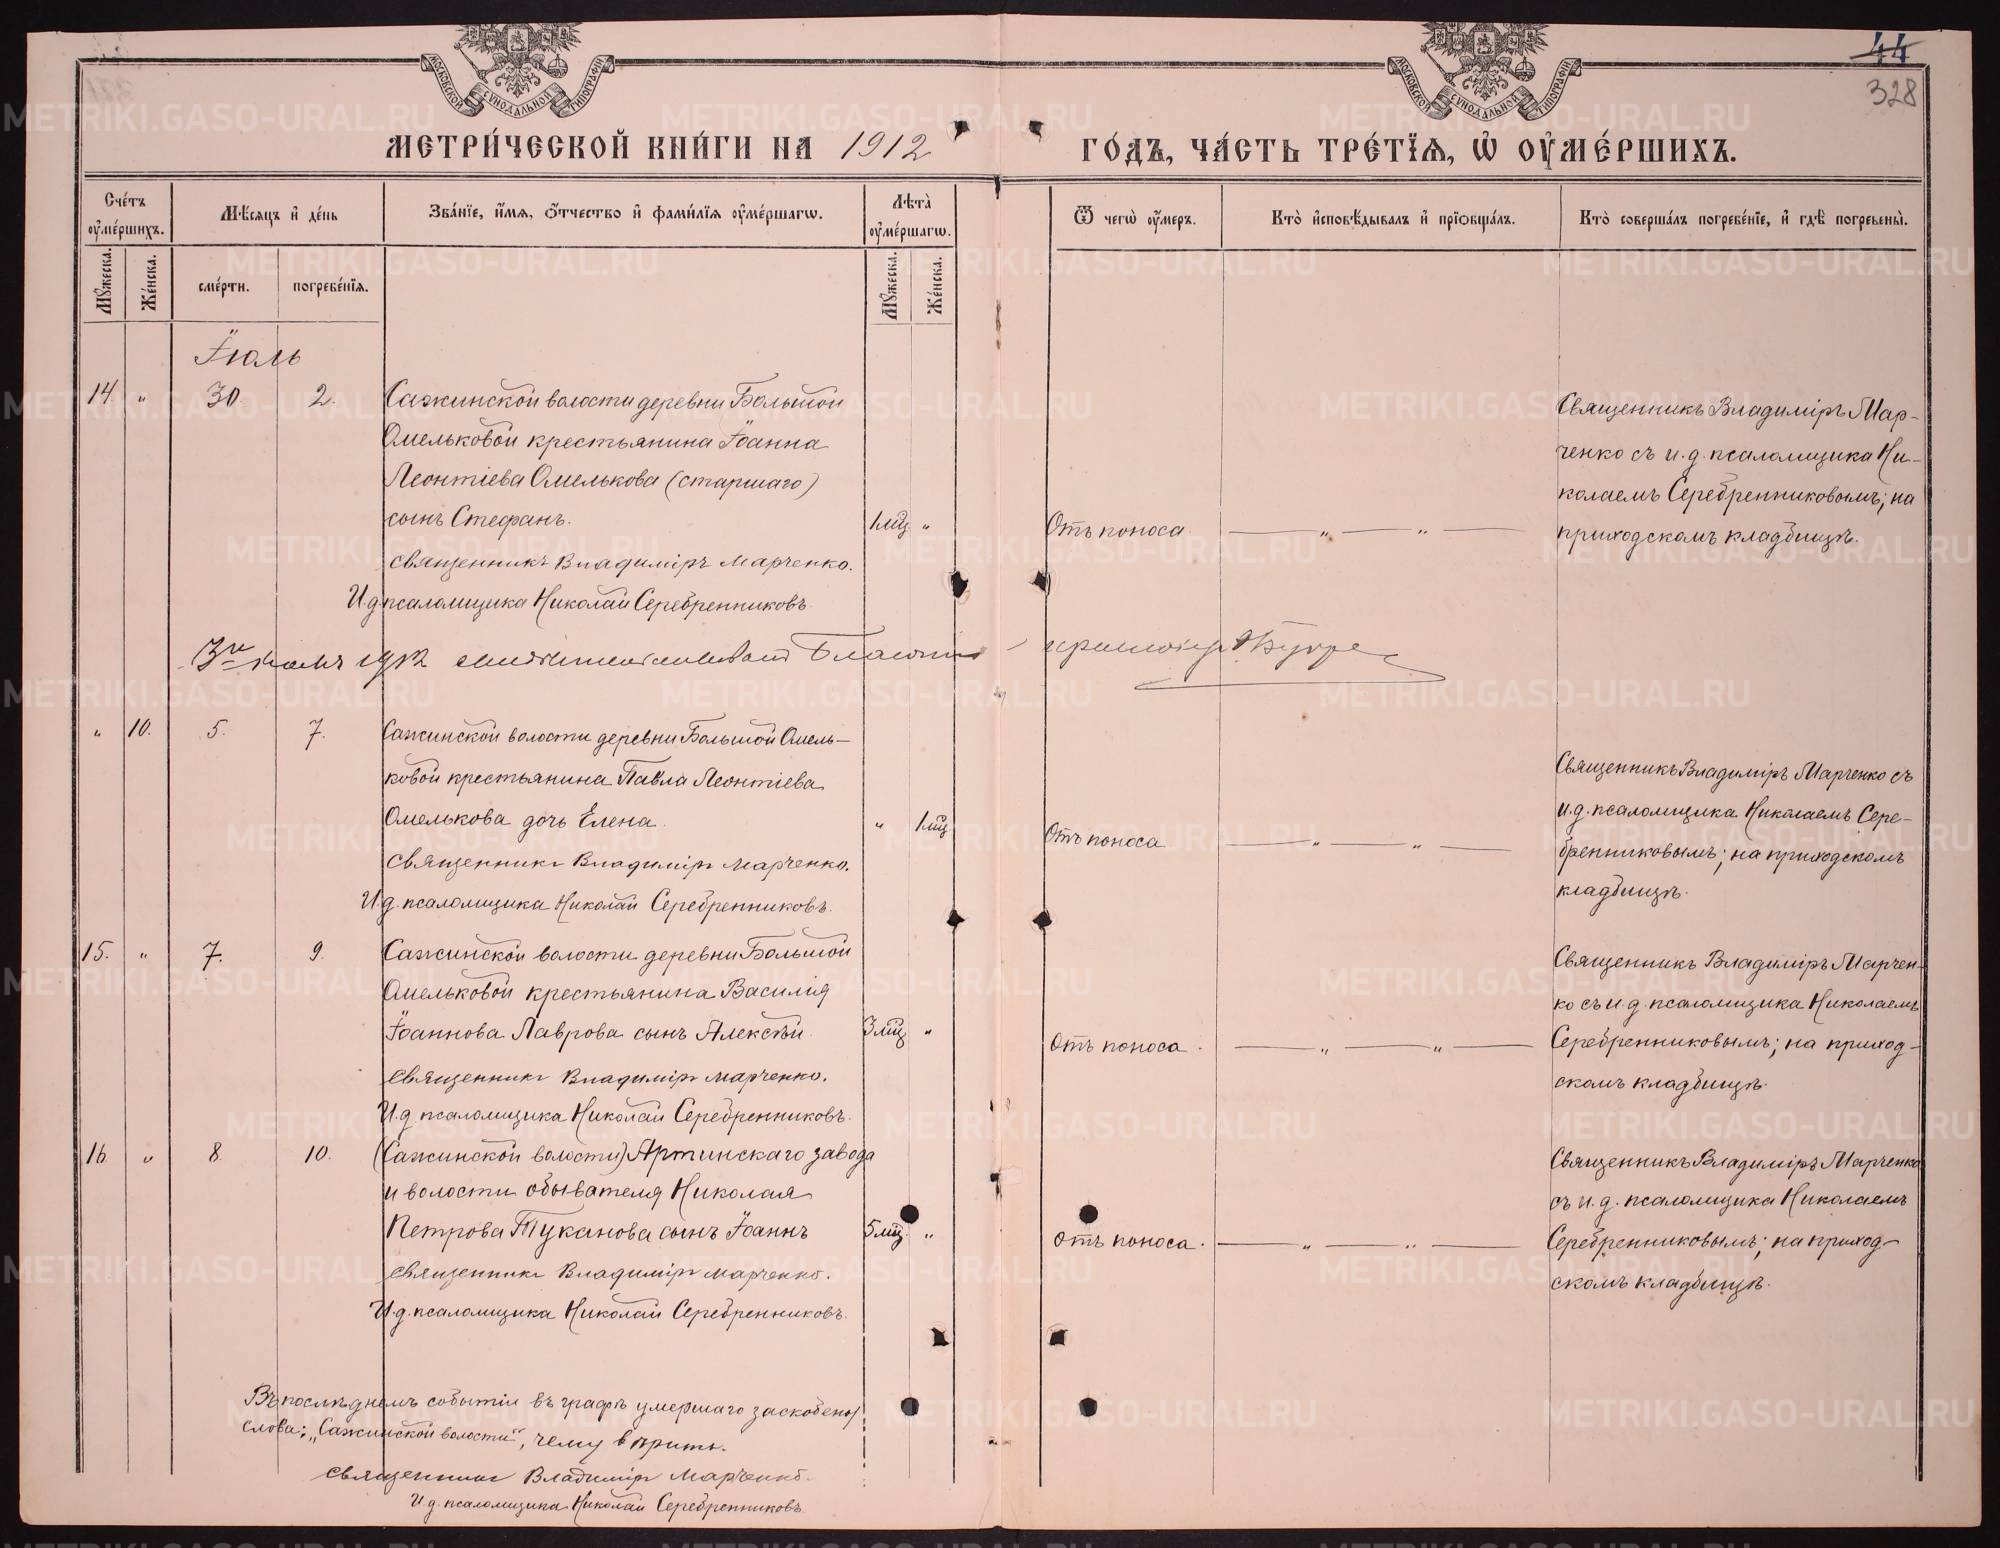 МОСКОВСКОЙ СѴНОДАЛЬНОЙ ТИПОГРАФІИ
МОСКОВСКОЙ СѴНОДАЛЬНОЙ ТИПОГРАФІИ
44
328
МЕТРИ́ЧЕСКОЙ КНИ́ГИ НА 1912 ГО́ДЪ, ЧА́СТЬ ТРЕ́ТЇЯ, Ѡ҆ ОУ҆МЕ́РШИХЪ.
Сче́тъ оу҆ме́ршихъ.
Мѣ́сяцъ и҆ де́нь
Зва́нїе, и҆́мя, о҆́тчество и҆ фами́лїя оу҆ме́ршагѡ.
Лѣ́та̀ оу҆ме́ршагѡ.
Ѿ чегѡ̀ оу҆́меръ.
Кто̀ и҆сповѣ́дывалъ и҆ прїѻбща́лъ.
Кто̀ соверша́лъ погребе́нїе, и҆ гдѣ̀ погребены̀.
Му́жеска.
Же́нска.
сме́рти.
погребе́нїя.
Му́жеска.
Же́нска.
Іюль
14. " 30. 2. Сажинской волости деревни Большой
Омельковой крестьянина Іоанна
Леонтіева Омелькова (старшаго)
сынъ Стефанъ. 1 мц. " Отъ поноса — " — " —
Священникъ Владиміръ Марченко.
И.д. псаломщика Николай Серебренниковъ.
Священникъ Владиміръ Мар-
ченко съ и.д. псаломщика Ни-
колаемъ Серебренниковымъ; на
приходскомъ кладбищѣ.
1912
" 10. 5. 7. Сажинской волости деревни Большой Омель-
ковой крестьянина Павла Леонтіева
Омелькова дочь Елена. " 1 мц. Отъ поноса — " — " —
Священникъ Владиміръ Марченко.
И.д. псаломщика Николай Серебренниковъ.
Священникъ Владиміръ Марченко съ
и.д. псаломщика Николаемъ Сере-
бренниковымъ; на приходскомъ
кладбищѣ.
15. " 7. 9. Сажинской волости деревни Большой
Омельковой крестьянина Василія
Іоаннова Лаврова сынъ Алексѣй. 3 мц. " Отъ поноса. — " — " —
Священникъ Владиміръ Марченко.
И.д. псаломщика Николай Серебренниковъ.
Священникъ Владиміръ Марчен-
ко съ и.д. псаломщика Николаемъ
Серебренниковымъ; на приход-
скомъ кладбищѣ.
16. " 8. 10. (Сажинской волости) Артинскаго завода
и волости обывателя Николая
Петрова Туканова сынъ Іоаннъ 5 мц. " Отъ поноса. — " — " —
Священникъ Владиміръ Марченко.
И.д. псаломщика Николай Серебренниковъ.
Священникъ Владиміръ Марченко
съ и.д. псаломщика Николаемъ
Серебренниковымъ; на приход-
скомъ кладбищѣ.
Въ послѣднемъ событіи въ графѣ умершаго заскобены
слова: „Сажинской волости", чему вѣрить.
Священникъ Владиміръ Марченко.
И.д. псаломщика Николай Серебренниковъ
METRIKI.GASO-URAL.RU